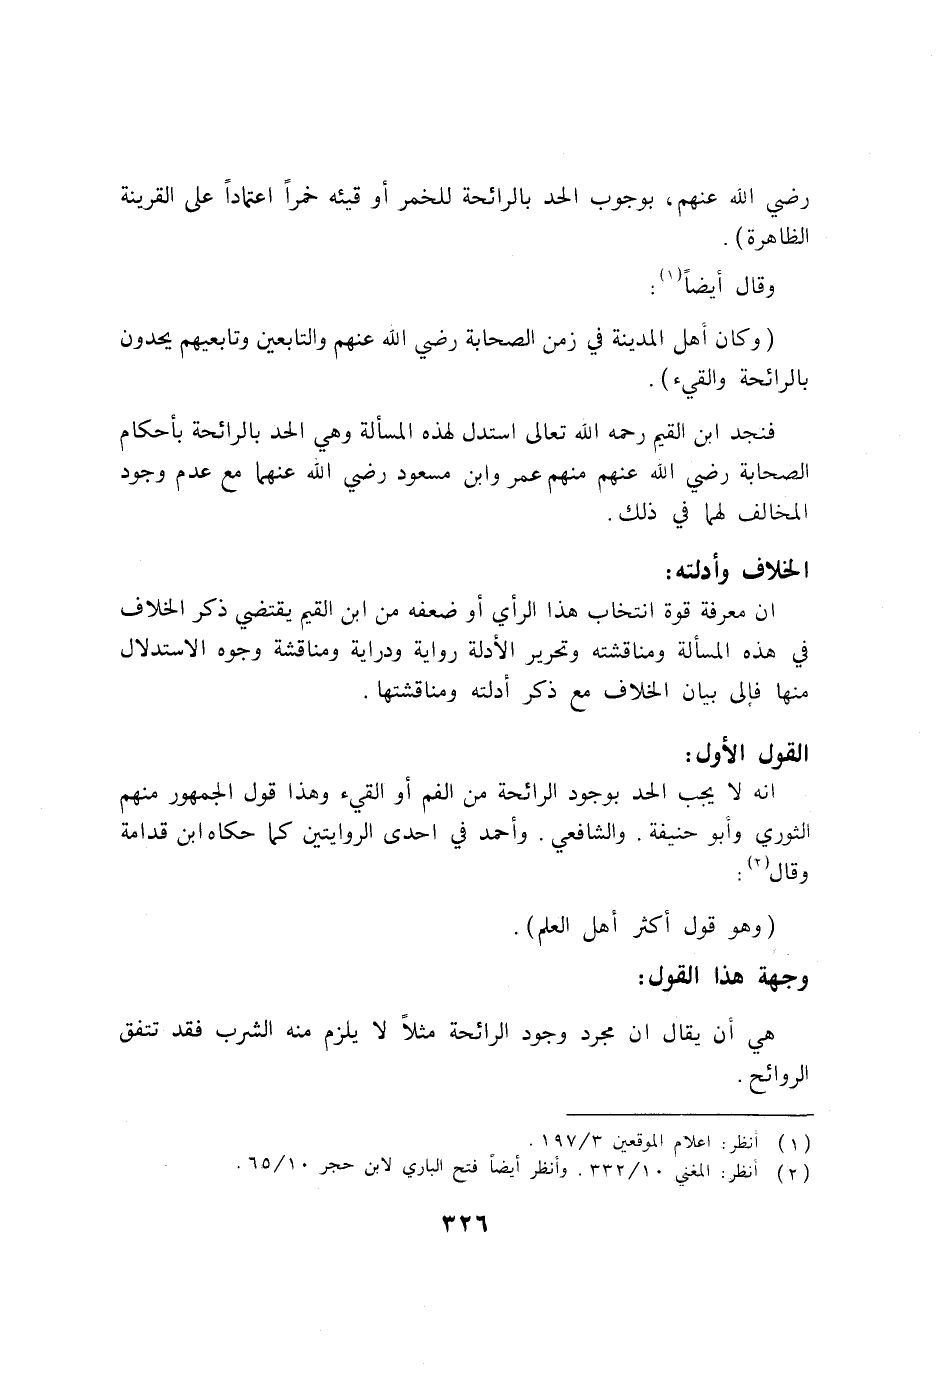 رضي الله عنهم، بوجوب الحد بالرائحة للخمر أو قيئه خمراً اعتماداً على القرينة
الظاهرة).
وقال أيضاً(١):
(وكان أهل المدينة في زمن الصحابة رضي الله عنهم والتابعين وتابعيهم يحدون
بالرائحة والقيء).
فنجد ابن القيم رحمه الله تعالى استدل لهذه المسألة وهي الحد بالرائحة بأحكام
الصحابة رضي الله عنهم منهم عمر وابن مسعود رضي الله عنهما مع عدم وجود
المخالف لهما في ذلك.
الخلاف وأدلته:
ان معرفة قوة انتخاب هذا الرأي أو ضعفه من ابن القيم يقتضي ذكر الخلاف
في هذه المسألة ومناقشته وتحرير الأدلة رواية ودراية ومناقشة وجوه الاستدلال
منها فإلى بيان الخلاف مع ذكر أدلته ومناقشتها.
القول الأول:
انه لا يجب الحد بوجود الرائحة من الفم أو القيء وهذا قول الجمهور منهم
الثوري وأبو حنيفة. والشافعي. وأحمد في احدى الروايتين كما حكاه ابن قدامة
وقال(٢):
(وهو قول أكثر أهل العلم).
وجهة هذا القول:
هي أن يقال ان مجرد وجود الرائحة مثلاً لا يلزم منه الشرب فقد تتفق
الروائح.
(١) أنظر: اعلام الموقعين ١٩٧/٣.
(٢) أنظر: المغني ٣٣٢/١٠. وأنظر أيضاً فتح الباري لابن حجر ٦٥/١٠.
٣٢٦